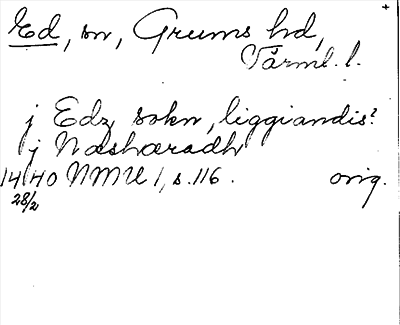 +
Ed, sn, Grums hd,
Värml. l.
j Edz sokn, liggiandis?
j Næshæradh
14 14/40 NMU 1, s. 116. orig.
28/2